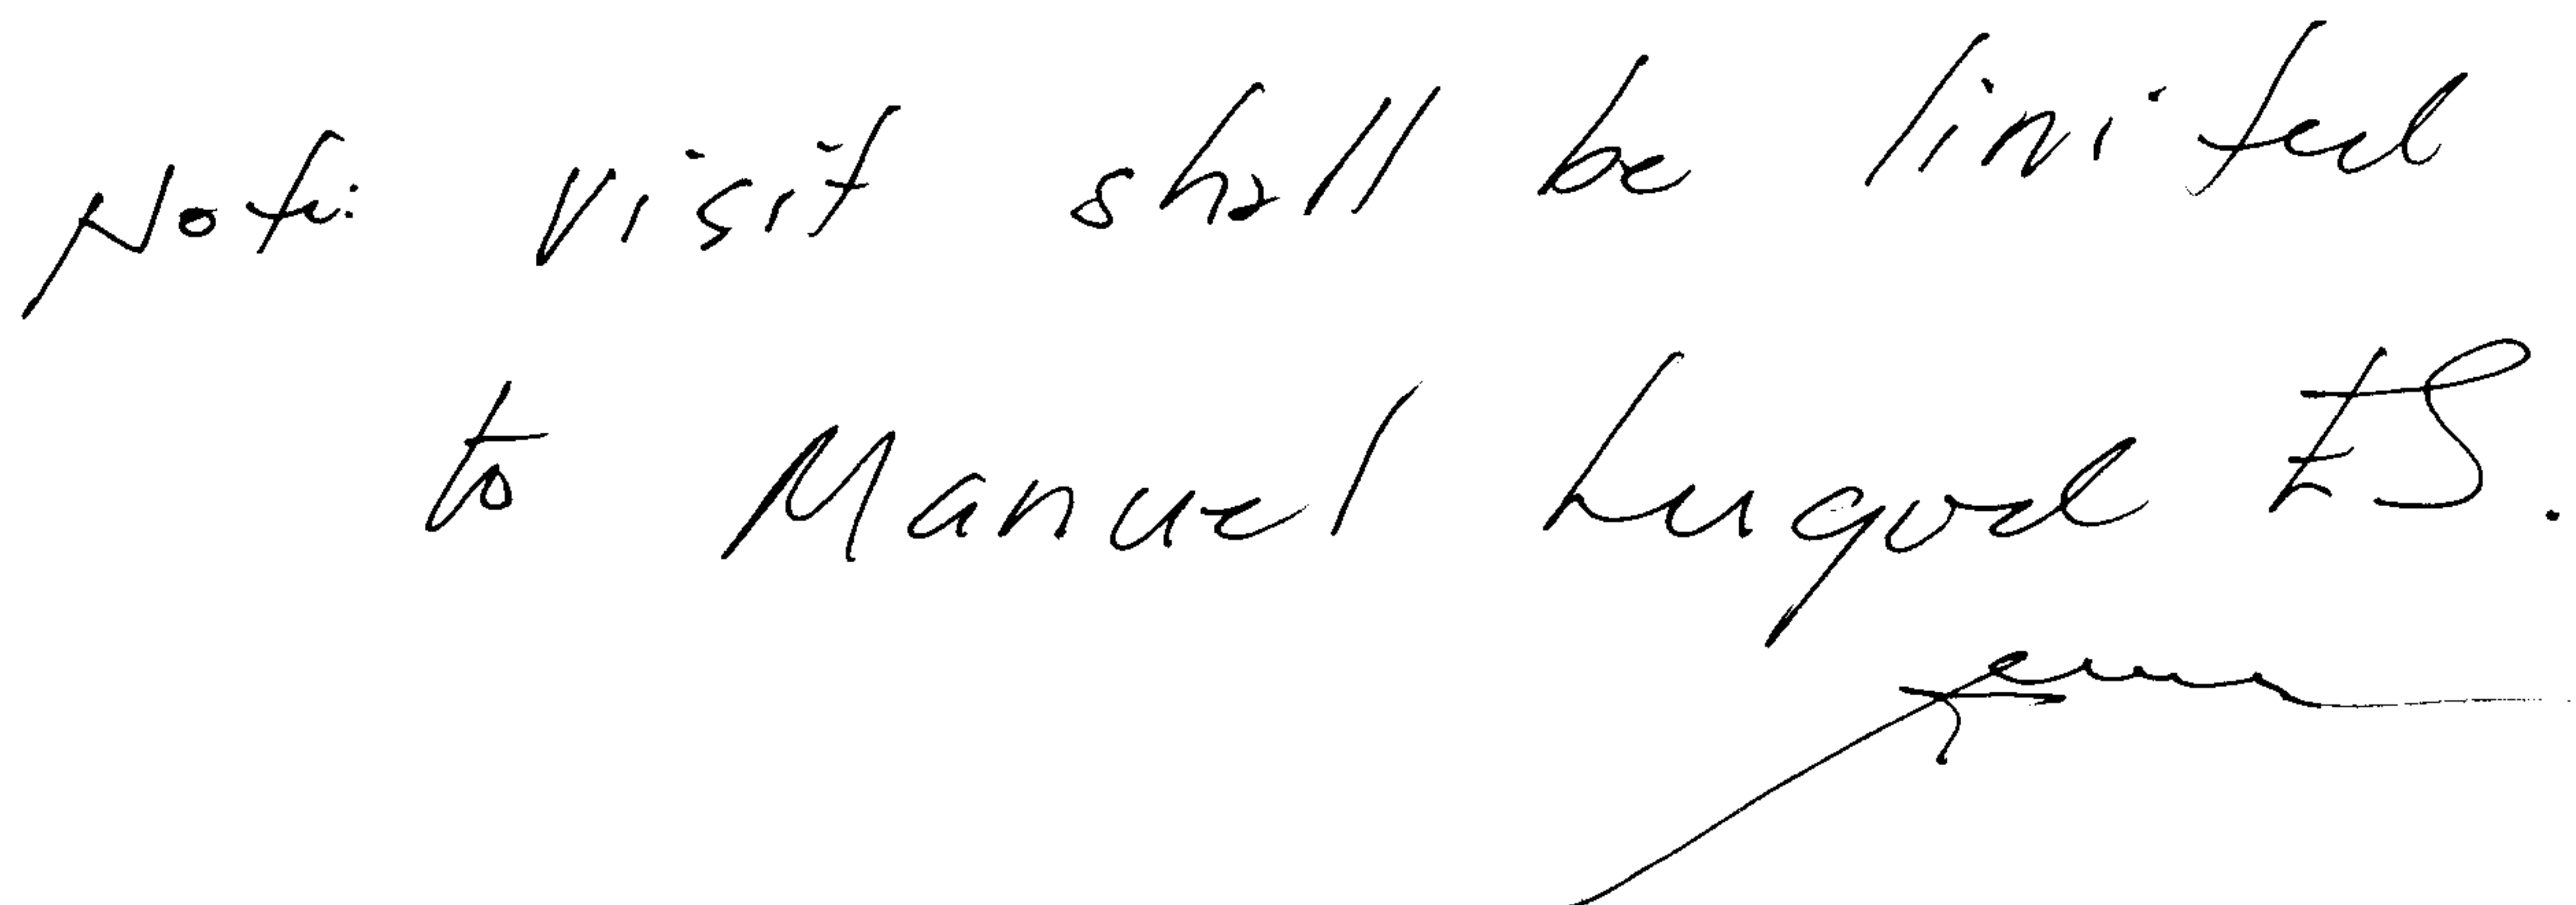 Note: Visit shall be limited
to Manuel Lugod ES.